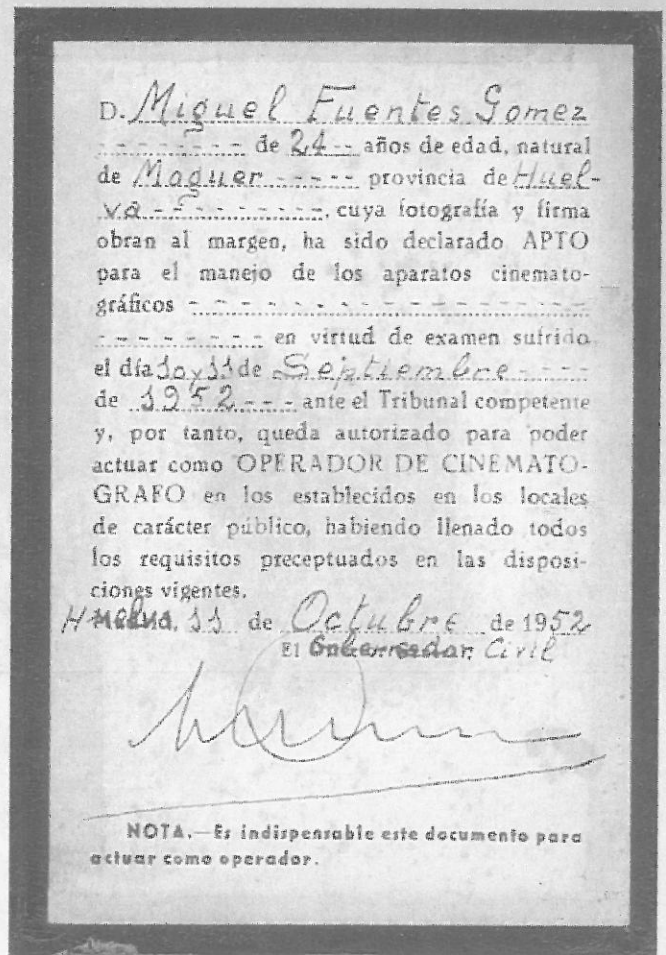 D. Miguel Fuentes Gomez
- - - - - - - - de 24 - - años de edad, natural
de Moguer - - - - - provincia de Huel-
va - - - - - - - - -, cuya fotografía y firma
obran al margen, ha sido declarado APTO
para el manejo de los aparatos cinemato-
gráficos - - - - - - - - - - - - - - - - - -
- - - - - - - - en virtud de examen sufrido
el día 10 y 11 de Septiembre - - - -
de 1952 - - - ante el Tribunal competente
y, por tanto, queda autorizado para poder
actuar como OPERADOR DE CINEMATO-
GRAFO en los establecidos en los locales
de carácter público, habiendo llenado todos
los requisitos preceptuados en las disposi-
ciones vigentes.
Huelva, 11 de Octubre de 1952
El Gobernador Civil
NOTA.—Es indispensable este documento para
actuar como operador.